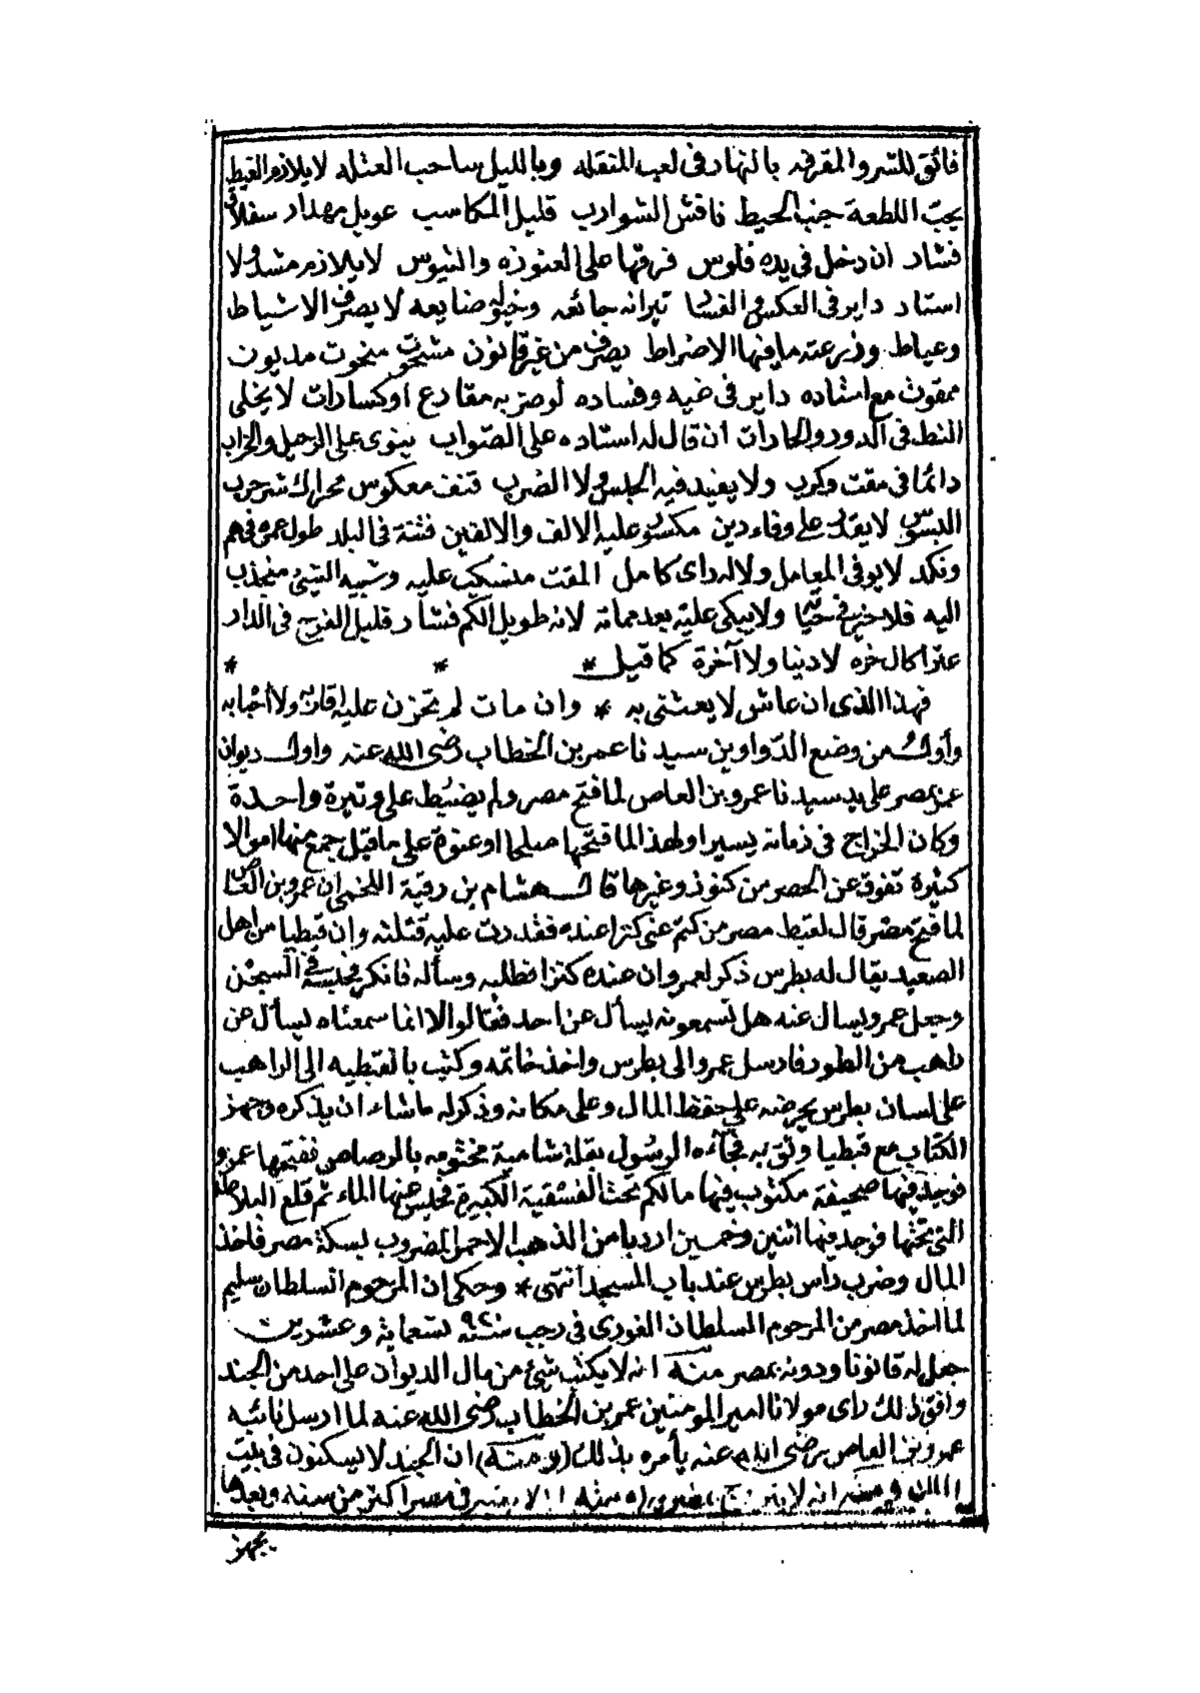 فائق للشر والمقرفه بالنهار في لعب المنقله وبالليل ساحب العتله لا يلازم الغيط
يحب اللطعة جنب الحيط نافش الشوارب قليل المكاسب عويل مهدار سفلاق
فشار ان دخل في يده فلوس فرقها على العنوزه والتيوس لا يلازم مشد ولا
استاد داير في العكس والفشا تيرانه جائعه وخيوله ضايعه لا يصرف الا شياط
وعياط وزرعته ما فيها الا ضراط يصرف من غير قانون مشحوت منحوت مديون
ممقوت مع استاده داير في غيه وفساده لو ضربه مقادع او كسارات لا يخلى
النط في الدور والحارات ان قال له استاده على الصواب ينوى على الرحيل والخراب
دائما في مقت وكرب ولا يفيد فيه الحبس ولا الضرب قنف معكوس محراك شر حرب
البسوس لا يقدر على وفاء دين مكسور عليه الالف والالفين فتنة في البلد طول عمره في هم
ونكد لا يوفى المعامل ولا له راى كامل المقت منسكب عليه وشبيه الشيئ منجذب
اليه فلا خير في حياته ولا يبكى عليه بعد مماته لانه طويل الكم فشار قليل الفرح في الدار
عتر اكال خره لا دنيا ولا آخرة كما قيل * * *
فهذا الذى ان عاش لا يعتنى به * وان مات لم تحزن عليه اقاربه ولا أحبابه
وأول من وضع الدواوين سيدنا عمر بن الخطاب رضى الله عنه واول ديوان
عمل بمصر على يد سيدنا عمرو بن العاص لما فتح مصر ولم يضبط على وتيرة واحدة
وكان الخراج في زمانه يسيرا ولهذا لما فتحها صلحا او عنوة على ما قيل جمع منها اموالا
كثيرة تفوق عن الحصر من كنوز وغيرها قال هشام بن رقية اللخمى ان عمرو بن العاص
لما فتح مصر قال لقبط مصر من كتم عنى كنزا عنده فقدرت عليه قتلته وان قبطيا من اهل
الصعيد يقال له بطرس ذكر لعمرو ان عنده كنزا فطلبه وسأله فانكر فحبسه في السجن
وجعل عمرو يسال عنه هل تسمعونه يسأل عن احد فقالوا لا انما سمعناه يسأل عن
راهب من الطور فارسل عمرو الى بطرس واخذ خاتمه وكتب بالقبطيه الى الراهب
على لسان بطرس يحرضه على حفظ المال وعلى مكانه وذكر له ما شاء ان يذكره وجهز
الكتاب مع قبطيا وثق به فجآءه الرسول بقلة شامية مختومه بالرصاص ففتحها عمرو
فوجد فيها صحيفة مكتوب فيها مالكم تحت الفسقية الكبيرة فحبس عنها الماء ثم قلع البلاط
التى تحتها فوجد فيها اثنين وخمسين اردبا من الذهب الاحمر المضروب بسكة مصر فاخذ
المال وضرب راس بطرس عند باب المسجد انتهى * وحكى ان المرحوم السلطان سليم
لما اخذ مصر من المرحوم السلطان الغورى في رجب سنة ٩٢٠ تسعماية وعشرين
جعل له قانونا ودونه بمصر منه انه لا يكتب شيئ من مال الديوان على احد من الجند
وافق ذلك راى مولانا امير المومنين عمر بن الخطاب رضى الله عنه لما ارسل نائبه
عمرو بن العاص رضى الله عنه يأمره بذلك (ومنه) ان الجند لا يسكنون في بيت
ومنه انه لا في مصر اكثر من سنه وبعدها
يجهز